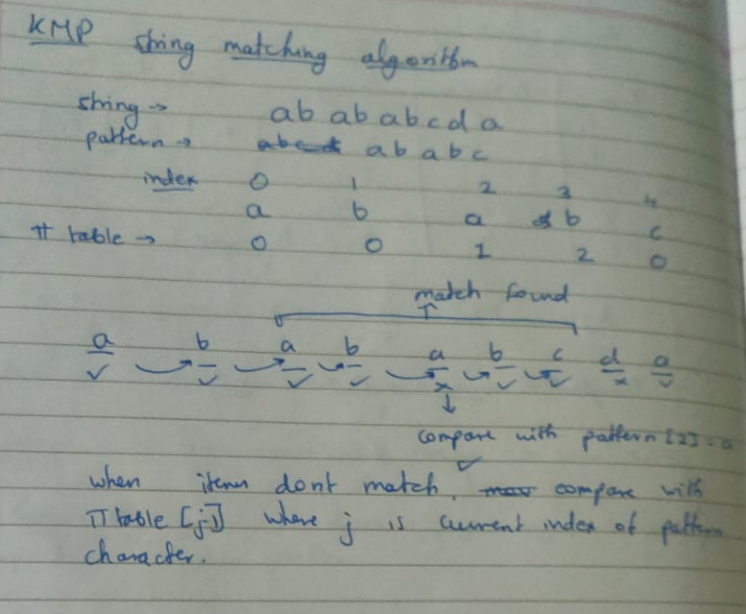 KMP string matching algorithm
string → ab ab abcda
pattern → ababc
index 0 1 2 3 4
a b a b c
π table → 0 0 1 2 0
match found
a b a b a b c d a
✓ ✓ ✓ ✓ x ✓ ✓ x ✓
compare with pattern [2] = a
✓
when items dont match, compare with
π table [j-1] where j is current index of pattern
character.